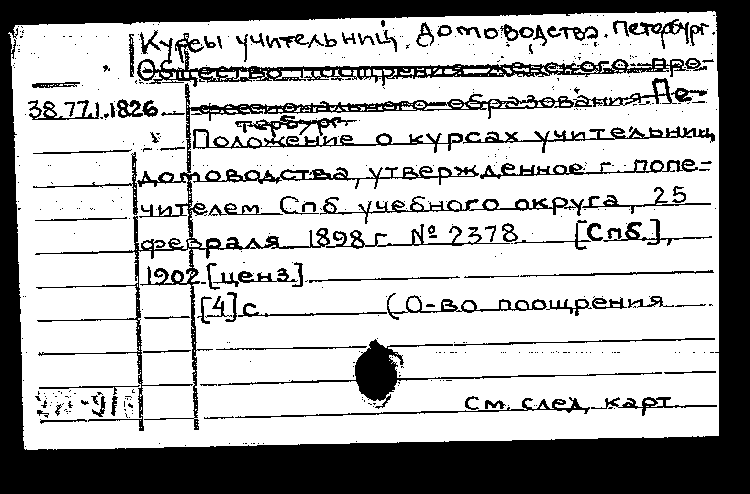 Курсы учительниц. Домоводства. Петербург.
Общество поощрения женского про-
38.77.1.1826. фессионального образования. Пе-
тербург.
Положение о курсах учительниц
домоводства, утвержденное г. попе-
чителем Спб учебного округа, 25
февраля 1898 г. № 2378. [Спб.],
1902 [ценз.]
[4] с. (О-во поощрения
см. след. карт.